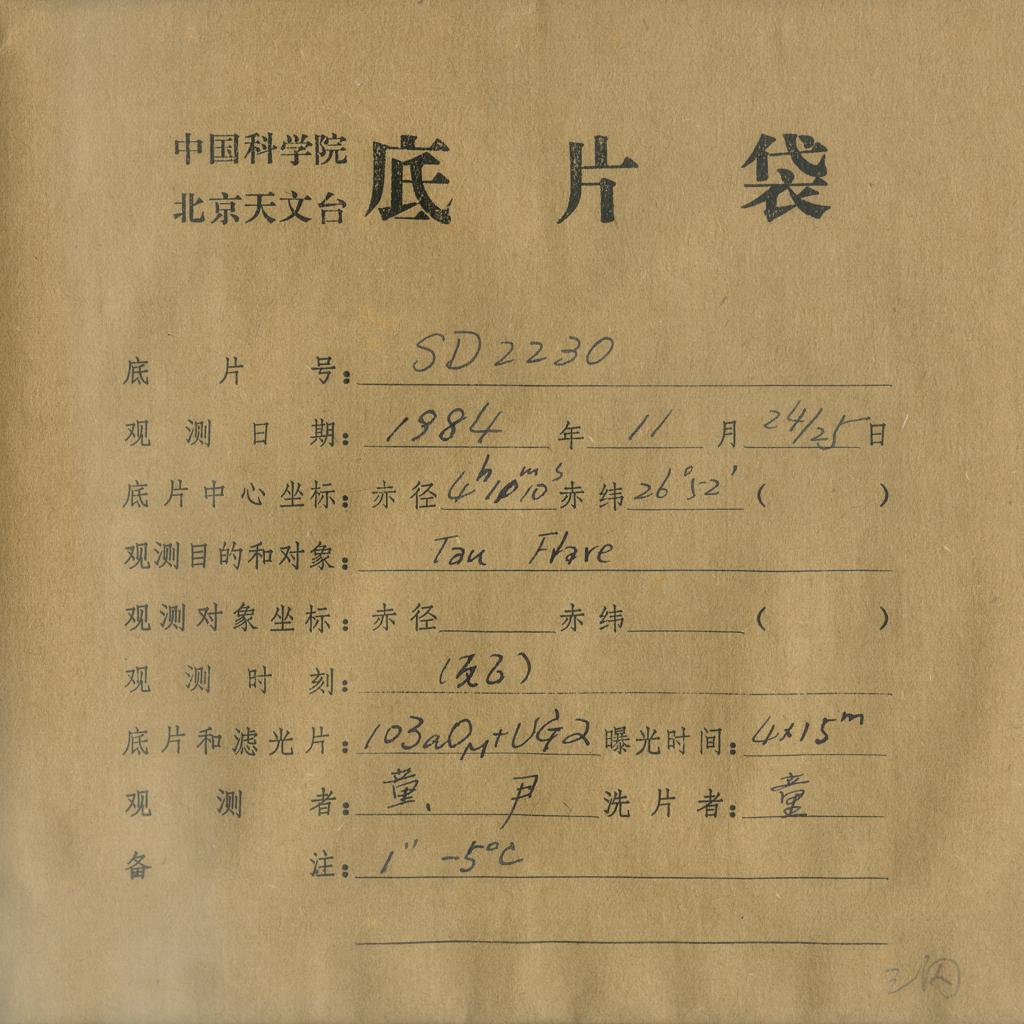 中国科学院
北京天文台
底片袋
底片号：SD2230
观测日期：1984年11月24/25日
底片中心坐标：赤径4ʰ10ᵐ10ˢ赤纬26°52′（ ）
观测目的和对象：Tau Flare
观测对象坐标：赤径 赤纬 （ ）
观测时刻：
底片和滤光片：103aO_M+UG2 曝光时间：4×15ᵐ
观测者：童、尹 洗片者：童
备注：1″ -5°C